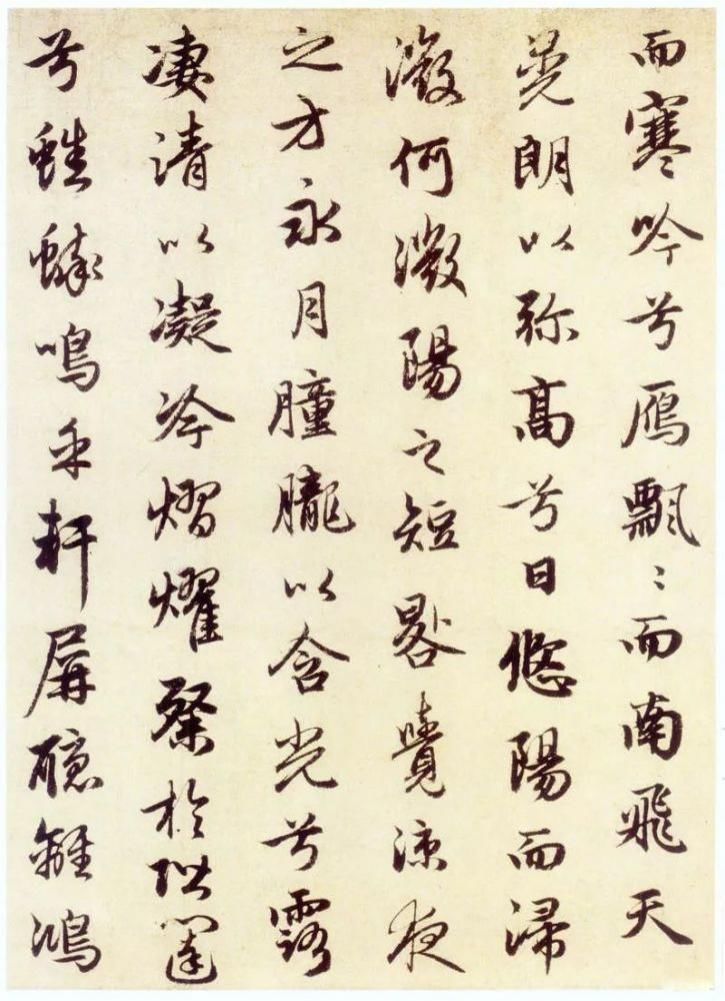 而寒吟兮雁飄〻而南飛天
晃朗以弥高兮日悠陽而
激何激陽之短晷覺涼夜
之方永月朣朧以含光兮露
凄清以凝冷熠燿粲於階闥
兮蟋蟀鳴乎軒屏聽離鴻